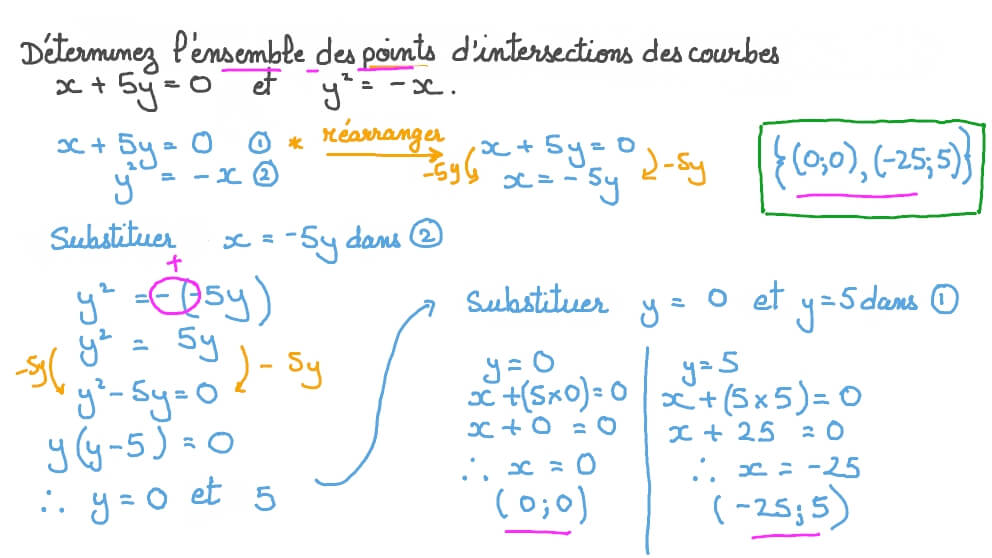 Déterminez l'ensemble des points d'intersections des courbes
x + 5y = 0 et y² = -x.
x + 5y = 0 ① * réarranger
y² = -x ②
x + 5y = 0
-5y x = -5y -5y
{(0;0), (-25;5)}
Substituer x = -5y dans ②
+
y² = -(-5y)
y² = 5y
-5y -5y
y² - 5y = 0
y(y-5) = 0
∴ y = 0 et 5
Substituer y = 0 et y = 5 dans ①
y = 0
x + (5×0) = 0
x + 0 = 0
∴ x = 0
(0;0)
y = 5
x + (5×5) = 0
x + 25 = 0
∴ x = -25
(-25;5)